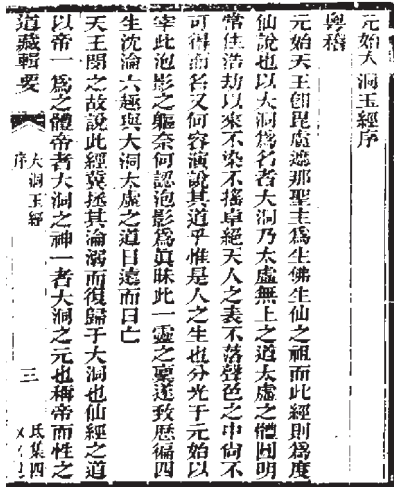 元始大洞玉經序
粵稽
元始天王卽毘盧遮那聖主爲生佛生仙之祖而此經則爲度
仙說也以大洞爲名者大洞乃太虛無上之道太虛之體圓明
常住浩劫以來不染不搖卓絕天人之表不落聲色之中尙不
可得而名又何容演說其道乎惟是人之生也分光于元始以
宰此泡影之軀奈何認泡影爲眞昧此一靈之稟遂致歷徧四
生沈淪六趣與大洞太虛之道日遠而日亡
天王閔之故說此經冀拯其淪溺而復歸于大洞也仙經之道
以帝一爲之體帝者大洞之神一者大洞之元也稱帝而性之
道藏輯要
大洞玉經
序
三
氐集四